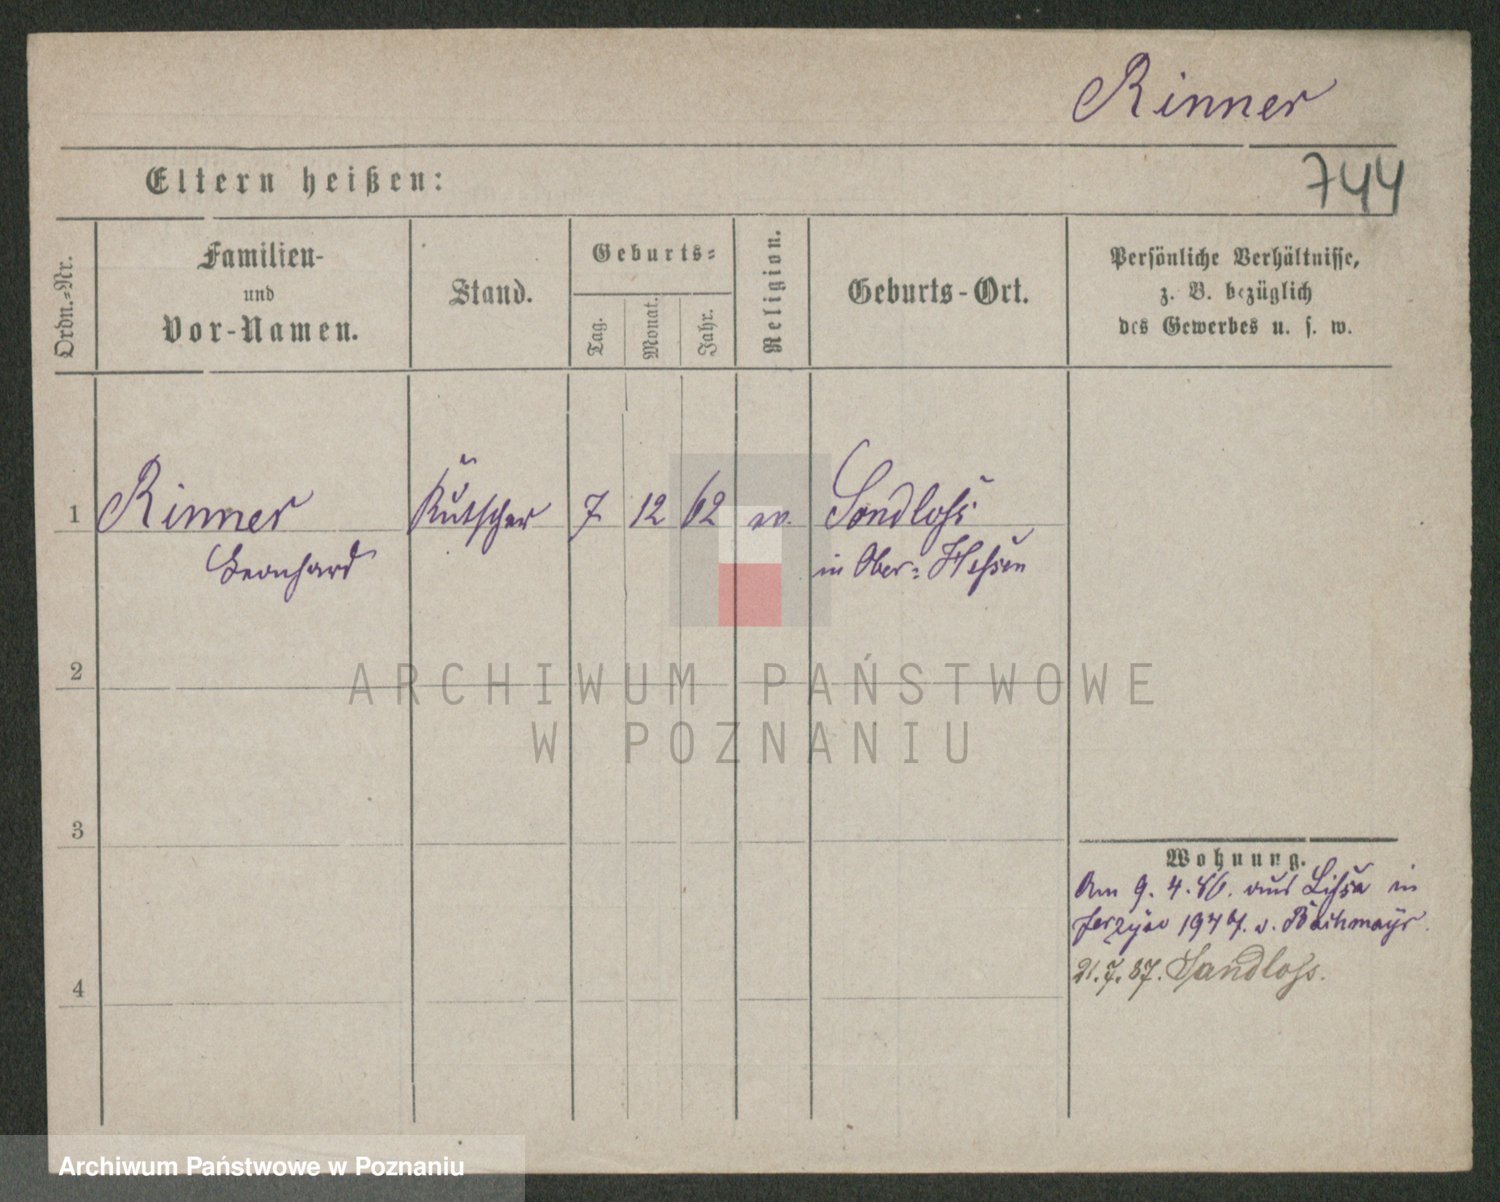 Rinner
744
Eltern heißen:
Ordn.-Nr.
Familien-
und
Vor-Namen.
Stand.
Geburts-
Tag.
Monat.
Jahr.
Religion.
Geburts-Ort.
Persönliche Verhältnisse,
z. B. bezüglich
des Gewerbes u. s. w.
1 Rinner Kutscher 7 12 62 ev. Sandloss
Leonhard in Ober-Hessen
2
ARCHIWUM PAŃSTWOWE
W POZNANIU
3
Wohnung.
Am 9. 4. 86. aus Lissa in
Jerzyce v. Bachmayr.
4
21. 7. 87. Sandloss.
Archiwum Państwowe w Poznaniu